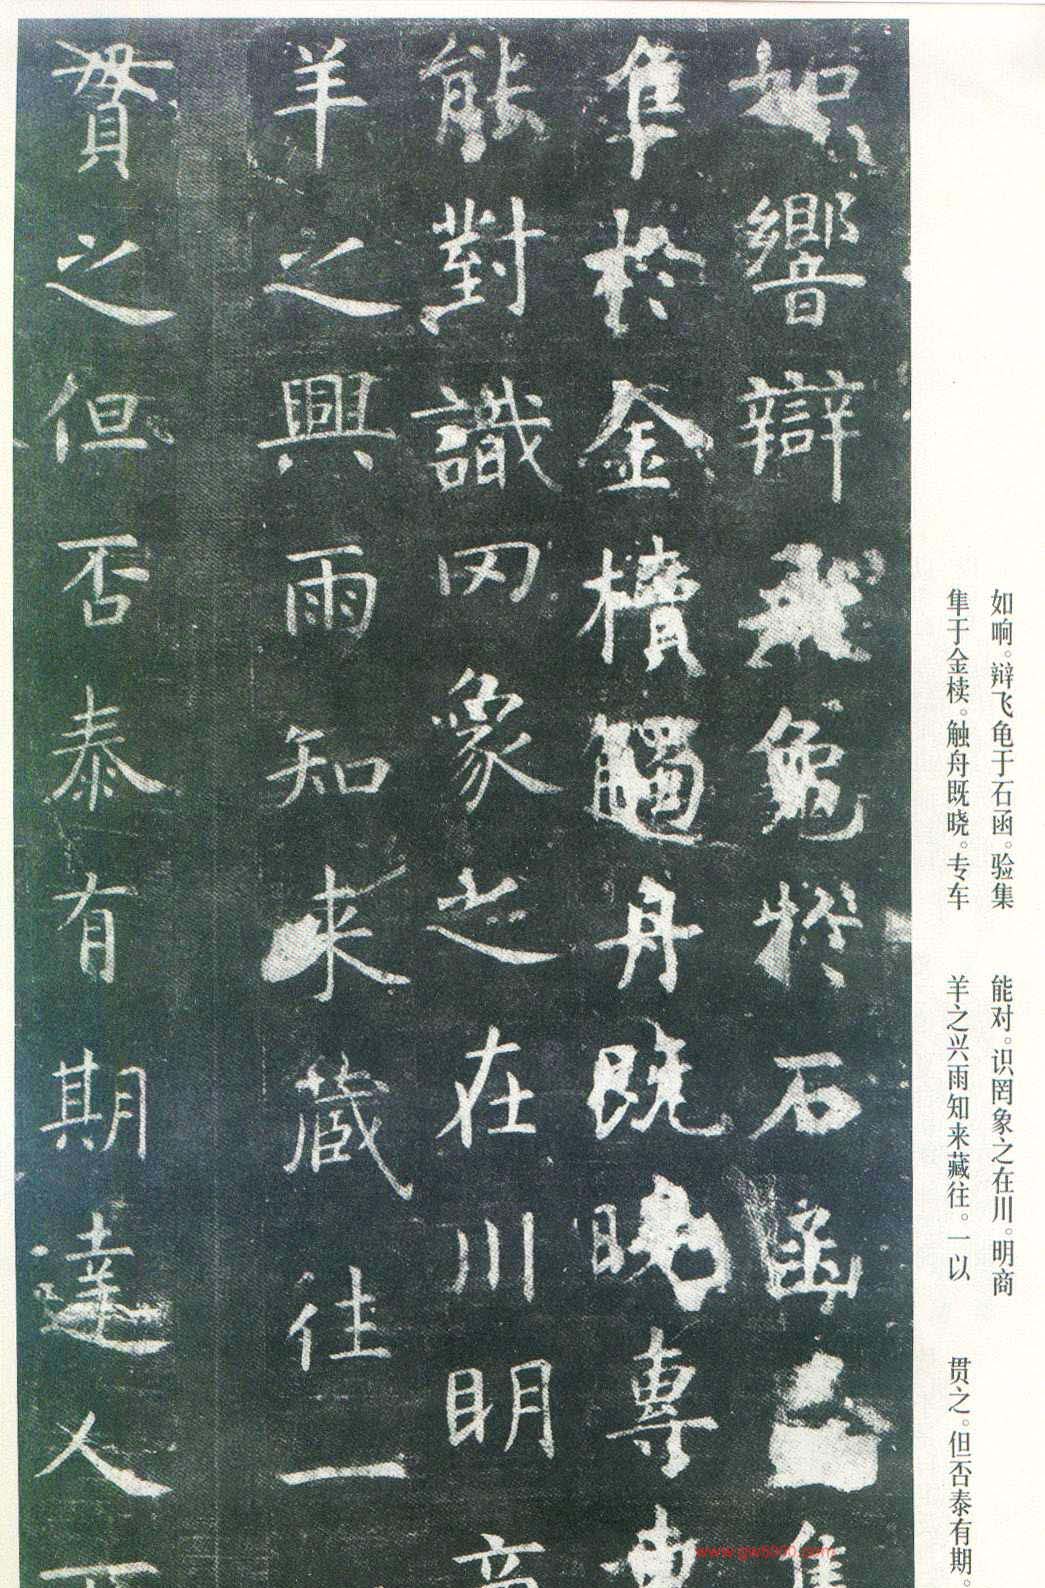 如響辯飛龜於石函
隼於金櫝觸舟既曉專車
能對識罔象之在川明商
羊之興雨知来蔵往一
貫之但否泰有期達人
如响。辩飞龟于石函。验集
隼于金椟。触舟既晓。专车
能对。识罔象之在川。明商
羊之兴雨知来藏往。一以
贯之。但否泰有期。